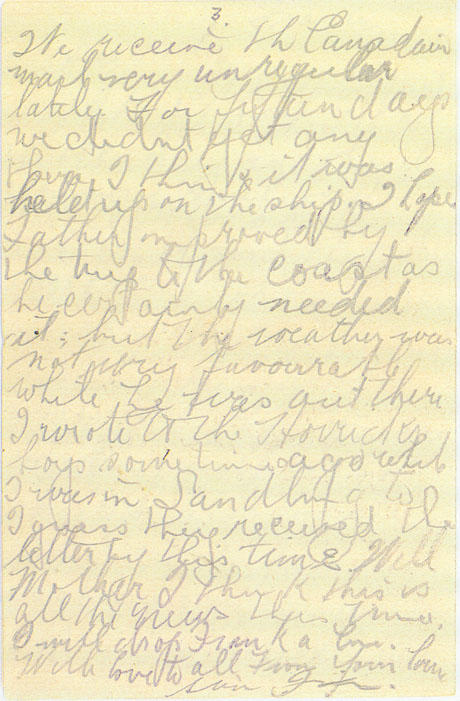 3.
We receive th Canadain
mail very unregular
lately. For fiften days
we didnt get any
I think it was
held up on the ship. I hope
Father improved by
the trip to the coast as
he certainly needed
it; but the weather was
not very favourable
while he was out there
I wrote to the
boys some time ago while
I was in
I guess they received the
letter by this time. Well
Mother I think this is
all the news this time.
I will drop Frank a line.
With love to all from your love
son